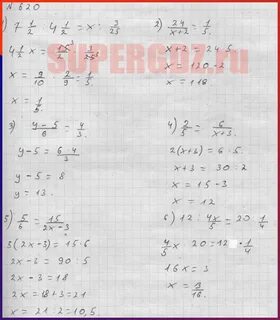 N 620
1) 7 1/2 : 4 1/2 = x : 3/25
4 1/2 x = 15/2 · 3/25
x = 9/10 · 2/9 = 1/5
x = 1/5
2) 24/x+2 = 1/5
x+2 = 24·5
x = 120-2
x = 118
3) y-5/6 = 4/3
y-5 = 6·4/3
y-5 = 8
y = 13.
4) 2/5 = 6/x+3.
2(x+3) = 6·5
x+3 = 30:2
x = 15-3
x = 12
5) 5/6 = 15/2x-3
5(2x-3) = 15·6
2x-3 = 90:5
2x-3 = 18
2x = 18+3 = 21
x = 21:2 = 10,5.
6) 12 : 4x/5 = 20 : 1/4
4/5 x · 20 = 12 · 1/4
16x = 3
x = 3/16.